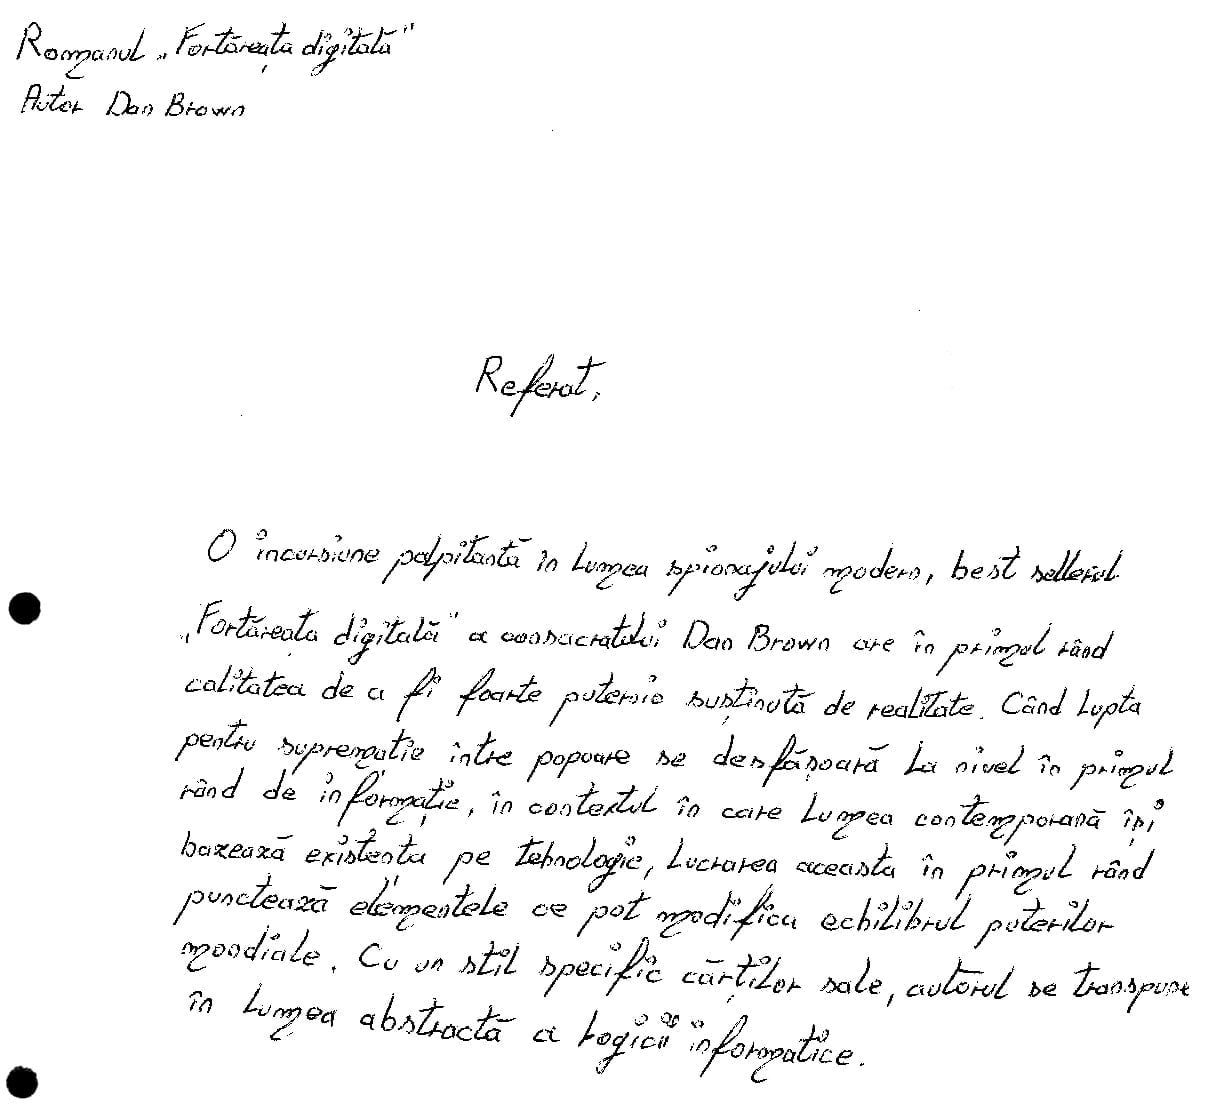 Romanul „Fortăreața digitală"
Autor Dan Brown
Referat.
O incursiune palpitantă în lumea spionajului modern, best sellerul
„Fortăreața digitală" a consacratului Dan Brown are în primul rând
calitatea de a fi foarte puternic susținută de realitate. Când lupta
pentru suprematie între popoare se desfășoară la nivel în primul
rând de informație, în contextul în care lumea contemporană își
bazează existenta pe tehnologie, lucrarea aceasta în primul rând
punctează elementele ce pot modifica echilibrul puterilor
mondiale. Cu un stil specific cărților sale, autorul se transpune
în lumea abstractă a logicii informatice.